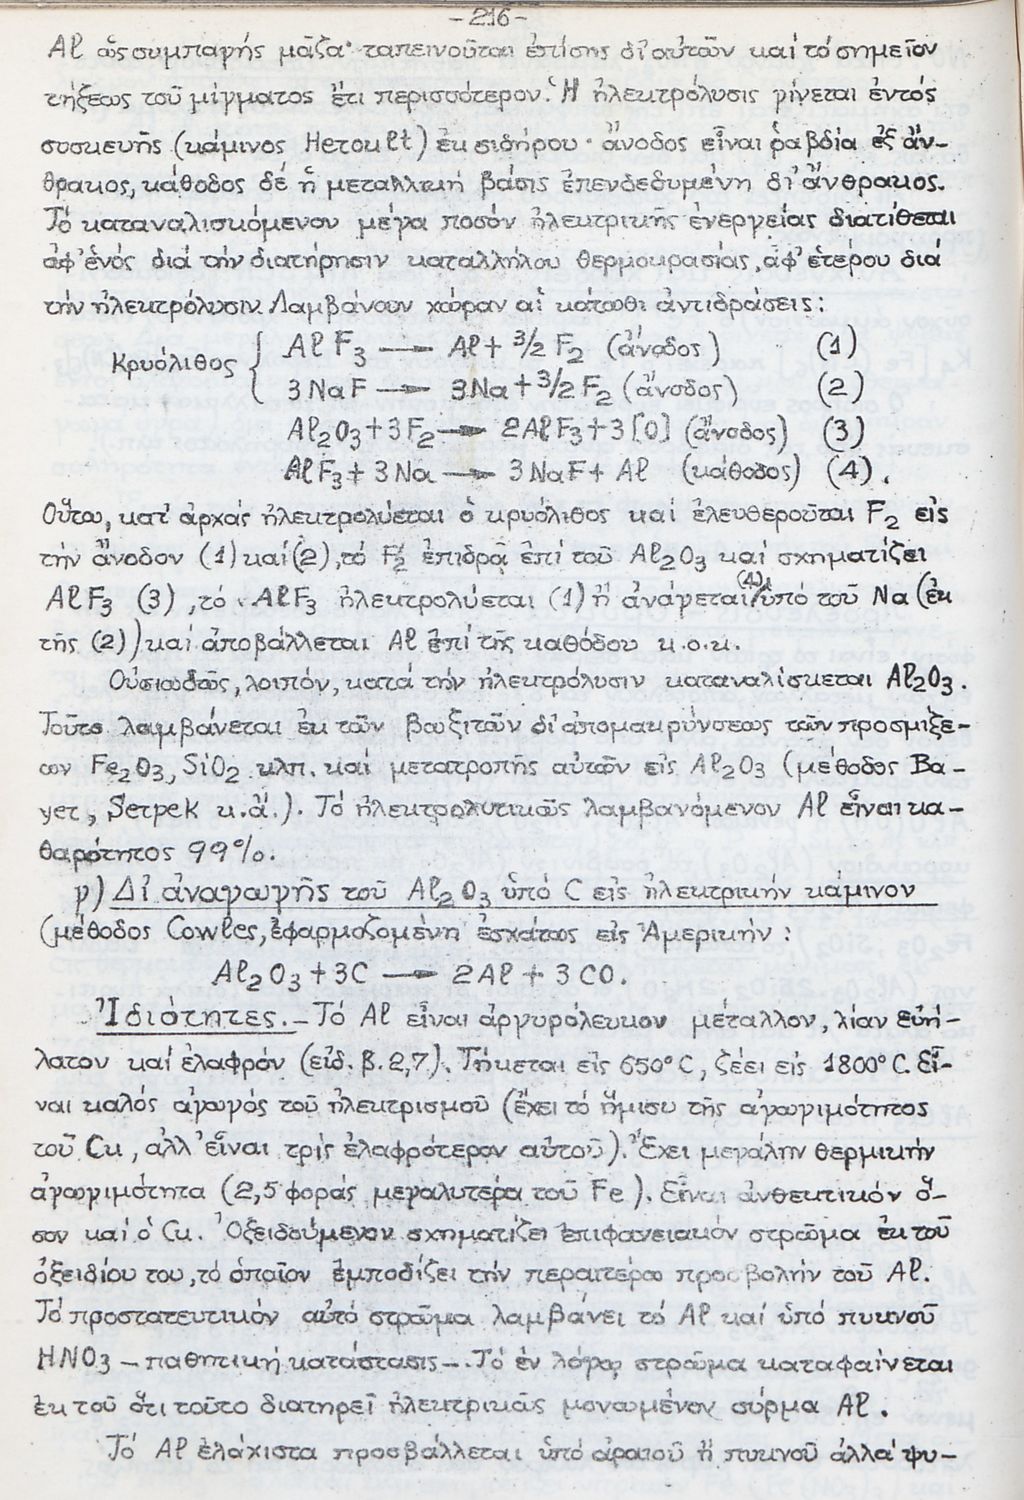 -216-
Αl ὡς συμπαγής μᾶζα· ταπεινοῦται ἐπίσης δι' αὐτῶν καί τό σημεῖον
τήξεως τοῦ μίγματος ἔτι περισσότερον. Ἡ ἠλεκτρόλυσις γίνεται ἐντός
συσκευῆς (κάμινος Heroult) ἐκ σιδήρου· ἄνοδος εἶναι ῥαβδία ἐξ ἄν-
θρακος, κάθοδος δέ ἡ μεταλλική βάσις ἐπενδεδυμένη δι' ἄνθρακος.
Τό καταναλισκόμενον μέγα ποσόν ἠλεκτρικῆς ἐνεργείας διατίθεται
ἀφ' ἑνός διά τήν διατήρησιν καταλλήλου θερμοκρασίας, ἀφ' ἑτέρου διά
τήν ἠλεκτρόλυσιν. Λαμβάνουν χώραν αἱ κάτωθι ἀντιδράσεις:
Κρυόλιθος { AlF₃ → Al + 3/2 F₂ (ἄνοδος) (1)
3NaF → 3Na + 3/2 F₂ (ἄνοδος) (2)
Al₂O₃ + 3F₂ → 2AlF₃ + 3[O] (ἄνοδος) (3)
AlF₃ + 3Na → 3NaF + Al (κάθοδος) (4).
Οὕτω, κατ' ἀρχάς ἠλεκτρολύεται ὁ κρυόλιθος καί ἐλευθεροῦται F₂ εἰς
τήν ἄνοδον (1) καί (2), τό F₂ ἐπιδρᾷ ἐπί τοῦ Al₂O₃ καί σχηματίζει
AlF₃ (3), τό AlF₃ ἠλεκτρολύεται (1) ἤ ἀνάγεται (4) ὑπό τοῦ Na (ἐκ
τῆς (2)) καί ἀποβάλλεται Al ἐπί τῆς καθόδου κ.ο.κ.
Οὐσιωδῶς, λοιπόν, κατά τήν ἠλεκτρόλυσιν καταναλίσκεται Al₂O₃.
Τοῦτο λαμβάνεται ἐκ τῶν βωξιτῶν δι' ἀπομακρύνσεως τῶν προσμίξε-
ων Fe₂O₃, SiO₂ κλπ. καί μετατροπῆς αὐτῶν εἰς Al₂O₃ (μέθοδος Ba-
yer, Serpek κ.ἄ.). Τό ἠλεκτρολυτικῶς λαμβανόμενον Al εἶναι κα-
θαρότητος 99%.
γ) Δι' ἀναγωγῆς τοῦ Al₂O₃ ὑπό C εἰς ἠλεκτρικήν κάμινον
(μέθοδος Cowles, ἐφαρμοζομένη ἐσχάτως εἰς Ἀμερικήν:
Al₂O₃ + 3C → 2Al + 3CO.
Ἰδιότητες.- Τό Al εἶναι ἀργυρόλευκον μέταλλον, λίαν εὐή-
λατον καί ἐλαφρόν (εἰδ. β. 2,7). Τήκεται εἰς 650°C, ζέει εἰς 1800°C. Εἶ-
ναι καλός ἀγωγός τοῦ ἠλεκτρισμοῦ (ἔχει τό ἥμισυ τῆς ἀγωγιμότητος
τοῦ Cu, ἀλλ' εἶναι τρίς ἐλαφρότερον αὐτοῦ). Ἔχει μεγάλην θερμικήν
ἀγωγιμότητα (2,5 φοράς μεγαλυτέρα τοῦ Fe). Εἶναι ἀνθεκτικόν ὅ-
σον καί ὁ Cu. Ὀξειδούμενον σχηματίζει ἐπιφανειακόν στρῶμα ἐκ τοῦ
ὀξειδίου του, τό ὁποῖον ἐμποδίζει τήν περαιτέρω προσβολήν τοῦ Al.
Τό προστατευτικόν αὐτό στρῶμα λαμβάνει τό Al καί ὑπό πυκνοῦ
HNO₃ - παθητική κατάστασις -. Τό ἐν λόγῳ στρῶμα καταφαίνεται
ἐκ τοῦ ὅτι τοῦτο διατηρεῖ ἠλεκτρικῶς μονωμένον σύρμα Al.
Τό Al ἐλάχιστα προσβάλλεται ὑπό ἀραιοῦ ἤ πυκνοῦ ἀλλά ψυ-